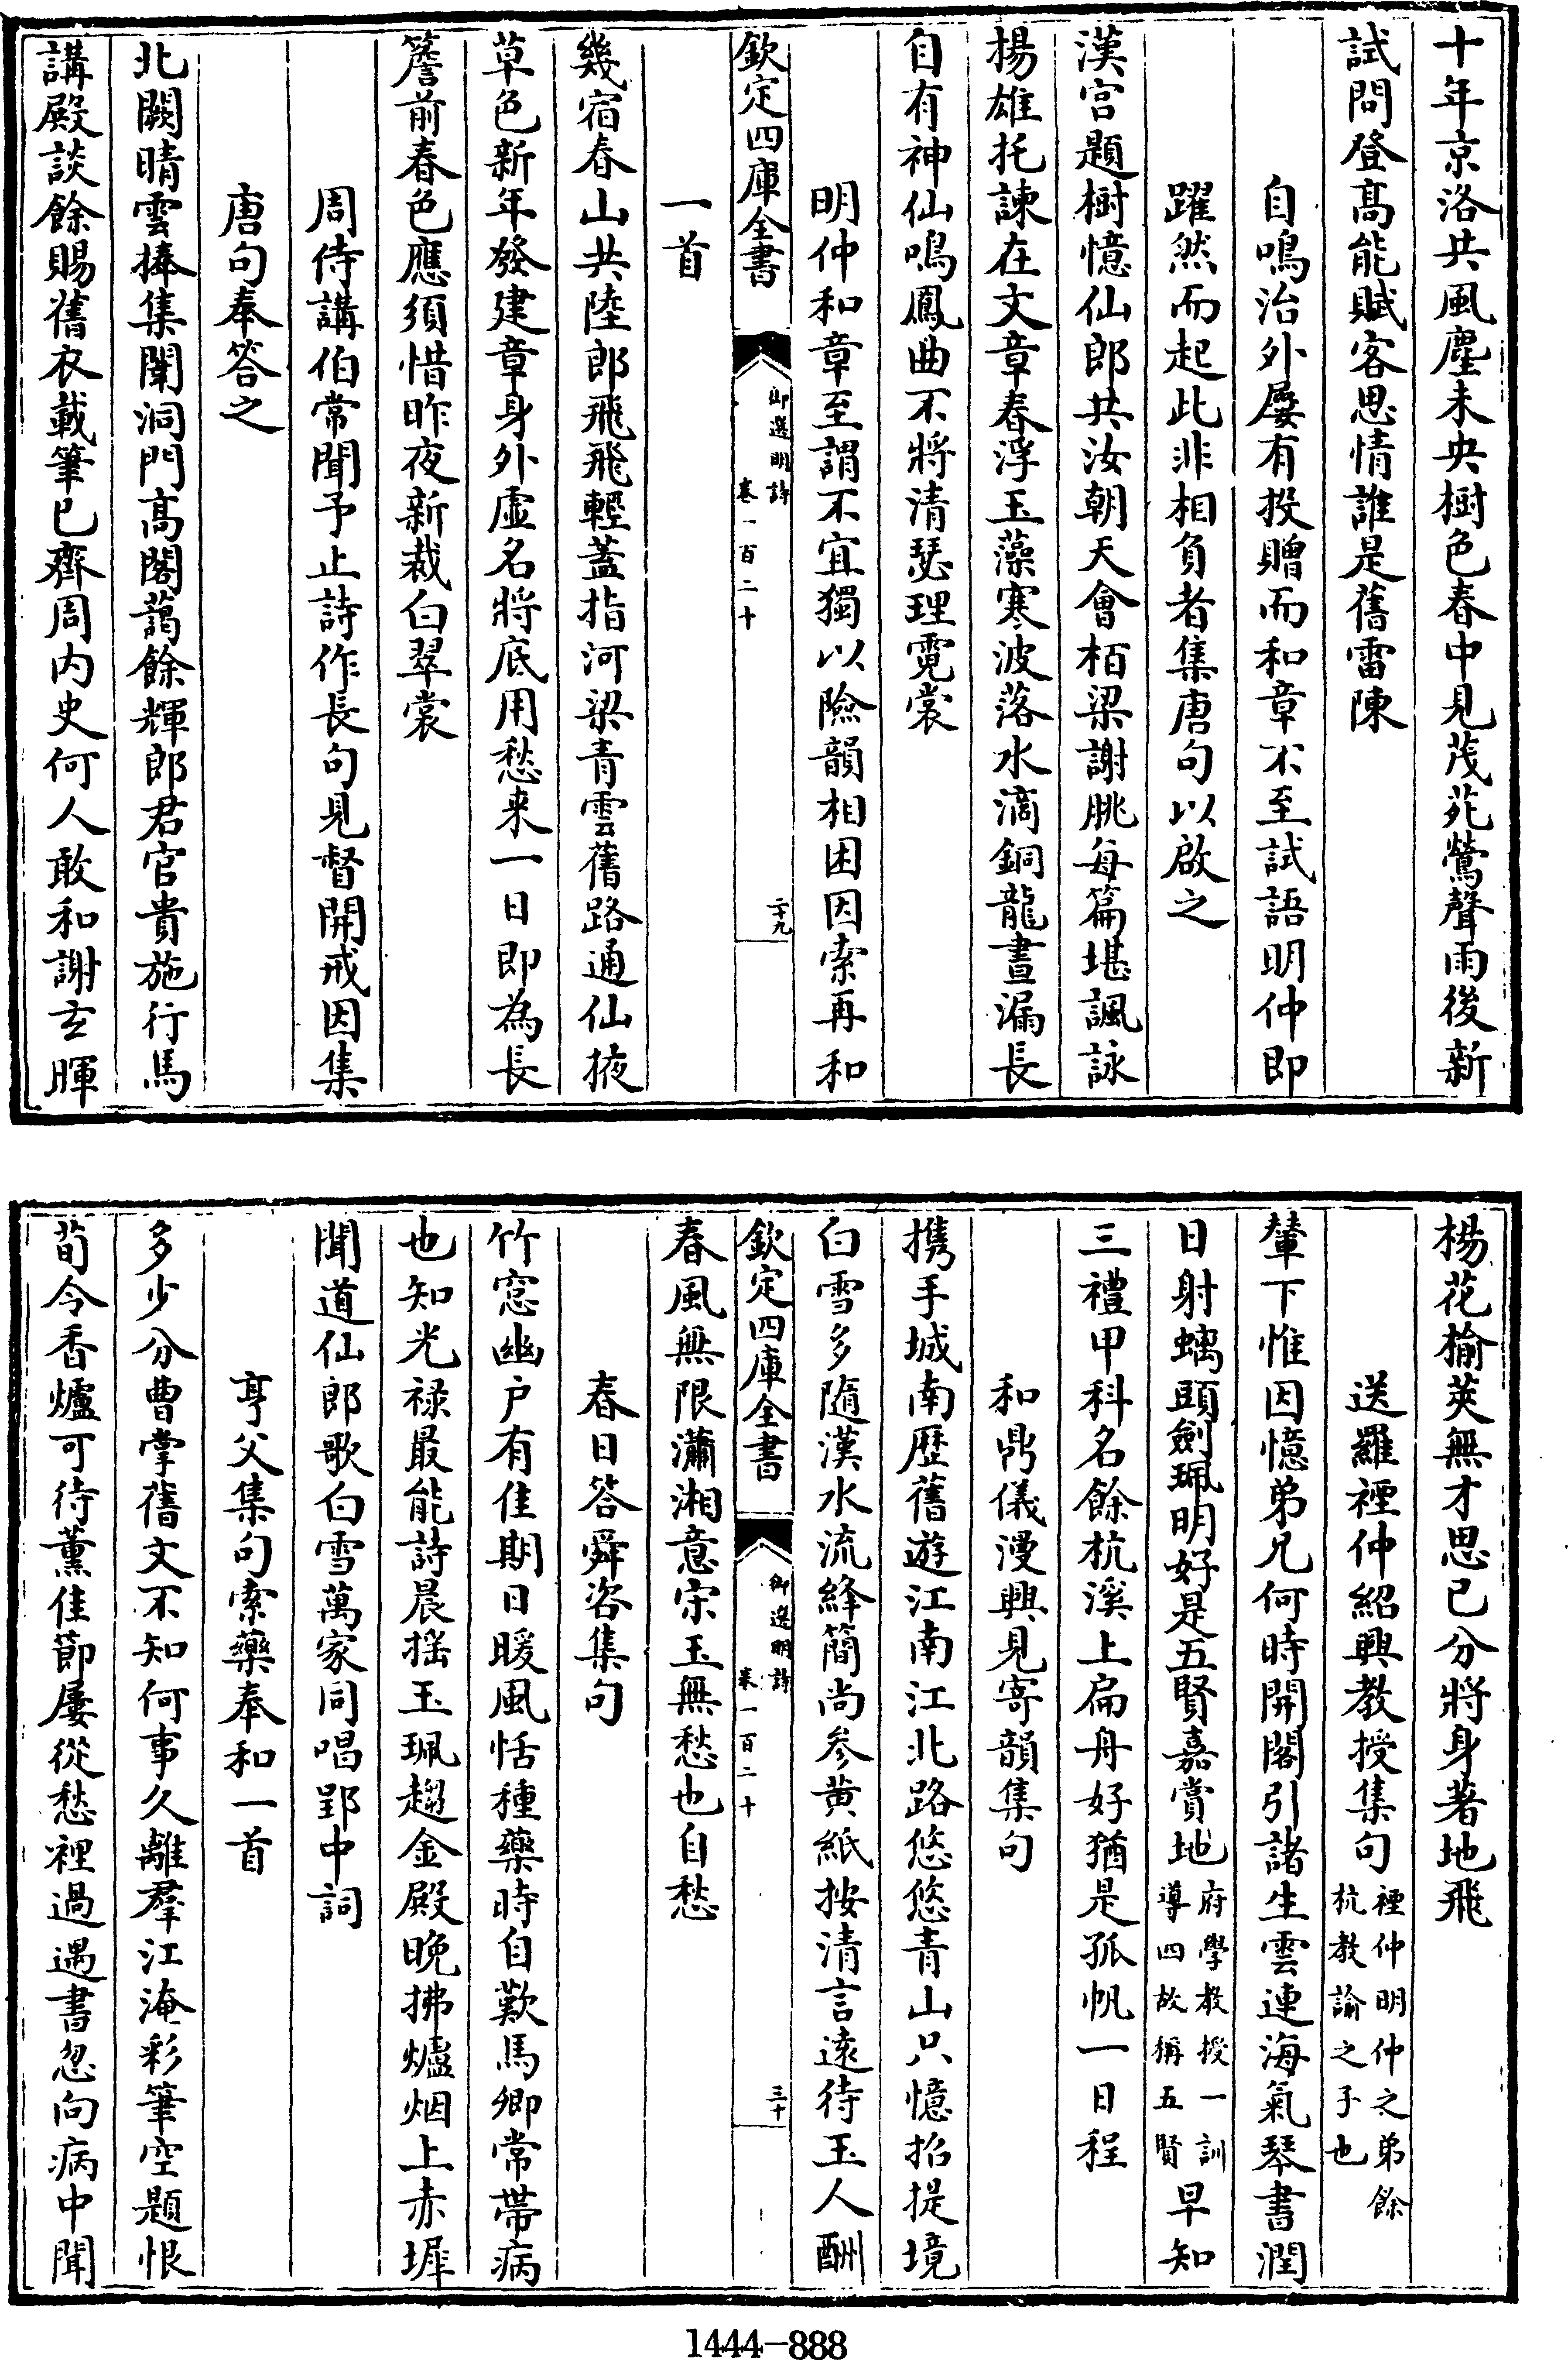 十年京洛共風塵未央樹色春中見茂苑鶯聲雨後新
試問登髙能賦客思情誰是舊雷陳
自鳴治外屢有投贈而和章不至試語明仲即
躍然而起此非相負者集唐句以啟之
漢宫題樹憶仙郎共汝朝天會栢梁謝朓每篇堪諷詠
楊雄托諫在文章春浮玉藻寒波落水滴銅龍晝漏長
自有神仙鳴鳳曲不將清瑟理霓裳
明仲和章至謂不宜獨以險韻相困因索再和
欽定四庫全書
御選明詩
卷一百二十
二十九
一首
幾宿春山共陸郎飛飛輕蓋指河梁青雲舊路通仙掖
草色新年發建章身外虛名將底用愁来一日即為長
簷前春色應須惜昨夜新裁白翠裳
周侍講伯常聞予止詩作長句見督開戒因集
唐句奉答之
北闕晴雲捧集闈洞門髙閣藹餘輝郎君官貴施行馬
講殿談餘賜舊衣載筆已齊周内史何人敢和謝玄暉
楊花榆莢無才思已分將身著地飛
送羅禋仲紹興教授集句
禋仲明仲之弟餘
杭教諭之子也
輦下惟因憶弟兄何時開閣引諸生雲連海氣琴書潤
日射螭頭劍珮明好是五賢嘉賞地
府學教授一訓
導四故稱五賢
早知
三禮甲科名餘杭溪上扁舟好猶是孤帆一日程
和鼎儀漫興見寄韻集句
携手城南歷舊遊江南江北路悠悠青山只憶招提境
白雪多隨漢水流絳簡尚參黄紙按清言遠待玉人酬
欽定四庫全書
御選明詩
卷一百二十
三十
春風無限瀟湘意宋玉無愁也自愁
春日答舜咨集句
竹窓幽户有佳期日暖風恬種藥時自歎馬卿常帶病
也知光禄最能詩晨摇玉珮趨金殿晚拂爐烟上赤墀
聞道仙郎歌白雪萬家同唱郢中詞
亨父集句索藥奉和一首
多少分曹掌舊文不知何事久離羣江淹彩筆空題恨
荀令香爐可待薰佳節屢從愁裡過遇書忽向病中聞
1444-888